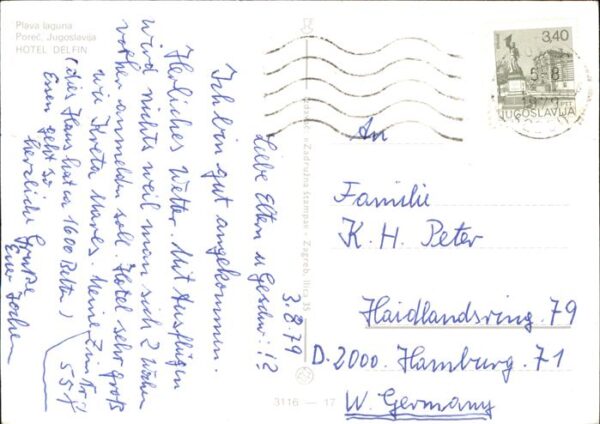 Plava laguna
Poreč, Jugoslavija
HOTEL DELFIN
3.8.79
Liebe Eltern u Geschw. !?
Ich bin gut angekommen.
Herrliches Wetter. Mit Ausflügen
wird nichts weil man sich 2 Wochen
vorher anmelden soll. Hotel sehr groß
wie Kreta Mares. Meine Zim Nr
557
(dies Haus hat ca 1600 Betten)
Essen geht so
Herzliche Grüße
Euer Jochen
Zadružna štampa - Zagreb, Ilica 35
3116 — 17
3,40
JUGOSLAVIJA
5-8
1979
An
Familie
K. H. Peter
Haidlandsring. 79
D. 2000. Hamburg. 71
W. Germany